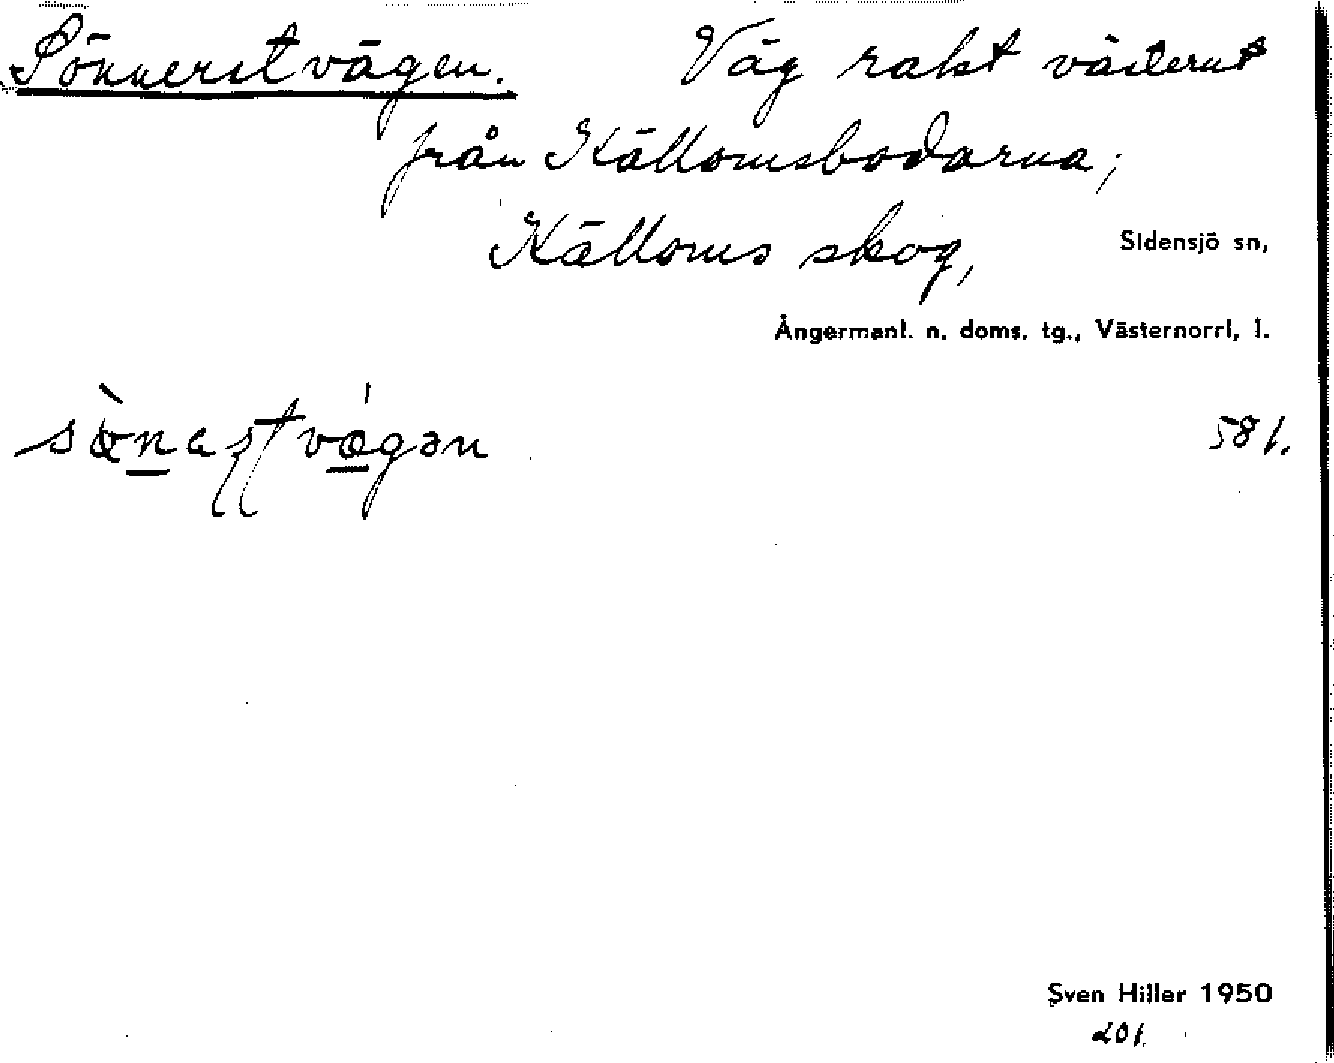 Sönnerstvägen. Väg rakt västerut
från Källomsbodarna;
Källoms skog, Sidensjö sn,
Ångermanl. n. doms. tg., Västernorrl. l.
581.
Sven Hiller 1950
201.